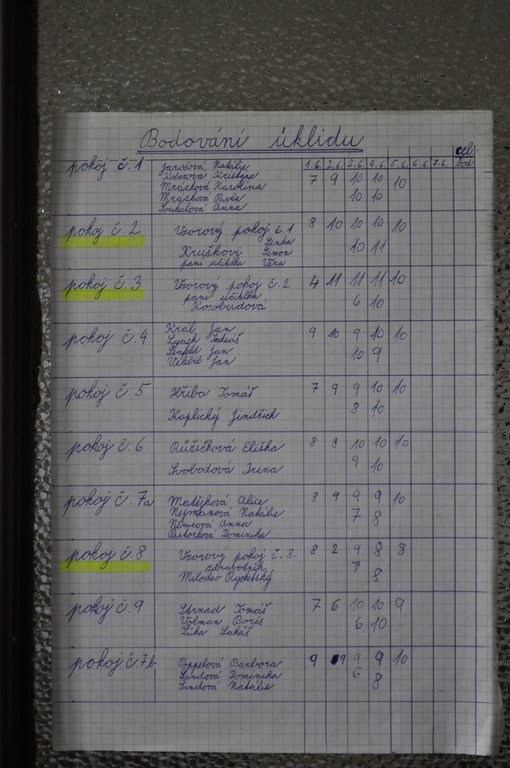 Bodování úklidu
1.6. 2.6. 3.6. 4.6. 5.6. 6.6. 7.6. cel. bod.
pokoj č.1 Jarošová Natálie 7 9 10 10 10
Kristýna
Mrázková Karolína 10 10
Mrázková
Soukalová Anna
pokoj č.2 Vzorový pokoj č.1 8 10 10 10 10
Lenka 10 11
Kruškovi Šimon
paní učitelka Věra
pokoj č.3 Vzorový pokoj č.2 4 11 11 11 10
paní učitelka 6 10
Kozbudová
pokoj č.4 Král Jan 9 10 9 10 10
Tobiáš
Jan 10 9
Jan
pokoj č.5 Hřiba Tomáš 7 9 9 10 10
8 10
Kaplický Jindřich
pokoj č.6 Růžičková Eliška 8 8 10 10 10
Svobodová Irena 9 10
pokoj č.7a Matějková Alice 8 9 9 9 10
Nejmanová Natálie 7 8
Němcová Anna
Dominika
pokoj č.8 Vzorový pokoj č.3. 8 2 9 8 8
zdravotník 7
Miloslav Rychetský 8
pokoj č.9 Strnad Tomáš 7 6 10 10 9
Volman Boris 6 10
Liška Lukáš
pokoj č.7b Poppelová Barbora 9 9 9 9 10
Šandová Dominika 6
Šandová Natálie 8